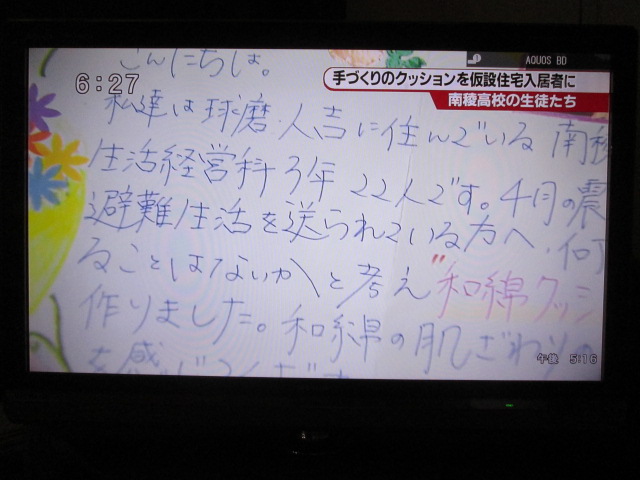 AQUOS BD
6:27
手づくりのクッションを仮設住宅入居者に
南稜高校の生徒たち
こんにちは。
私達は球磨・人吉に住んでいる 南稜
生活経営科3年 22人です。4月の震
避難生活を送られている方へ、何
ることはないかと考え"和綿クッシ
作りました。和綿の肌ざわりの
を感
午後 5:16